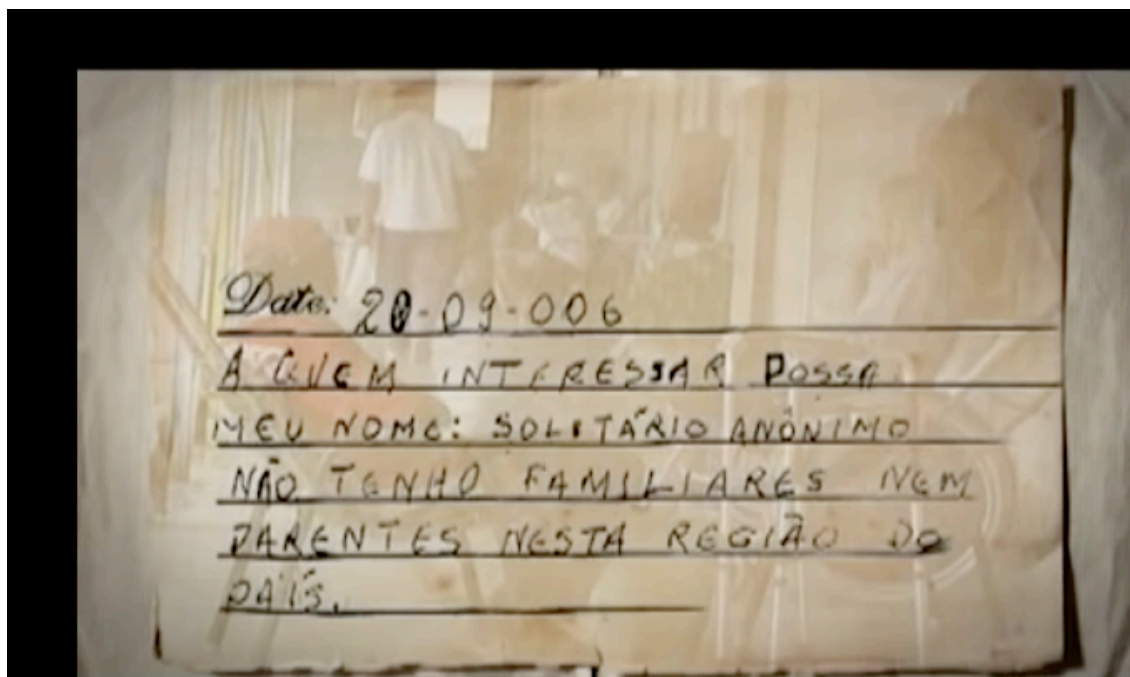 Date: 20-09-006
A QUEM INTERESSAR POSSA
MEU NOME: SOLITÁRIO ANÔNIMO
NÃO TENHO FAMILIARES NEM
PARENTES NESTA REGIÃO DO
PAÍS.